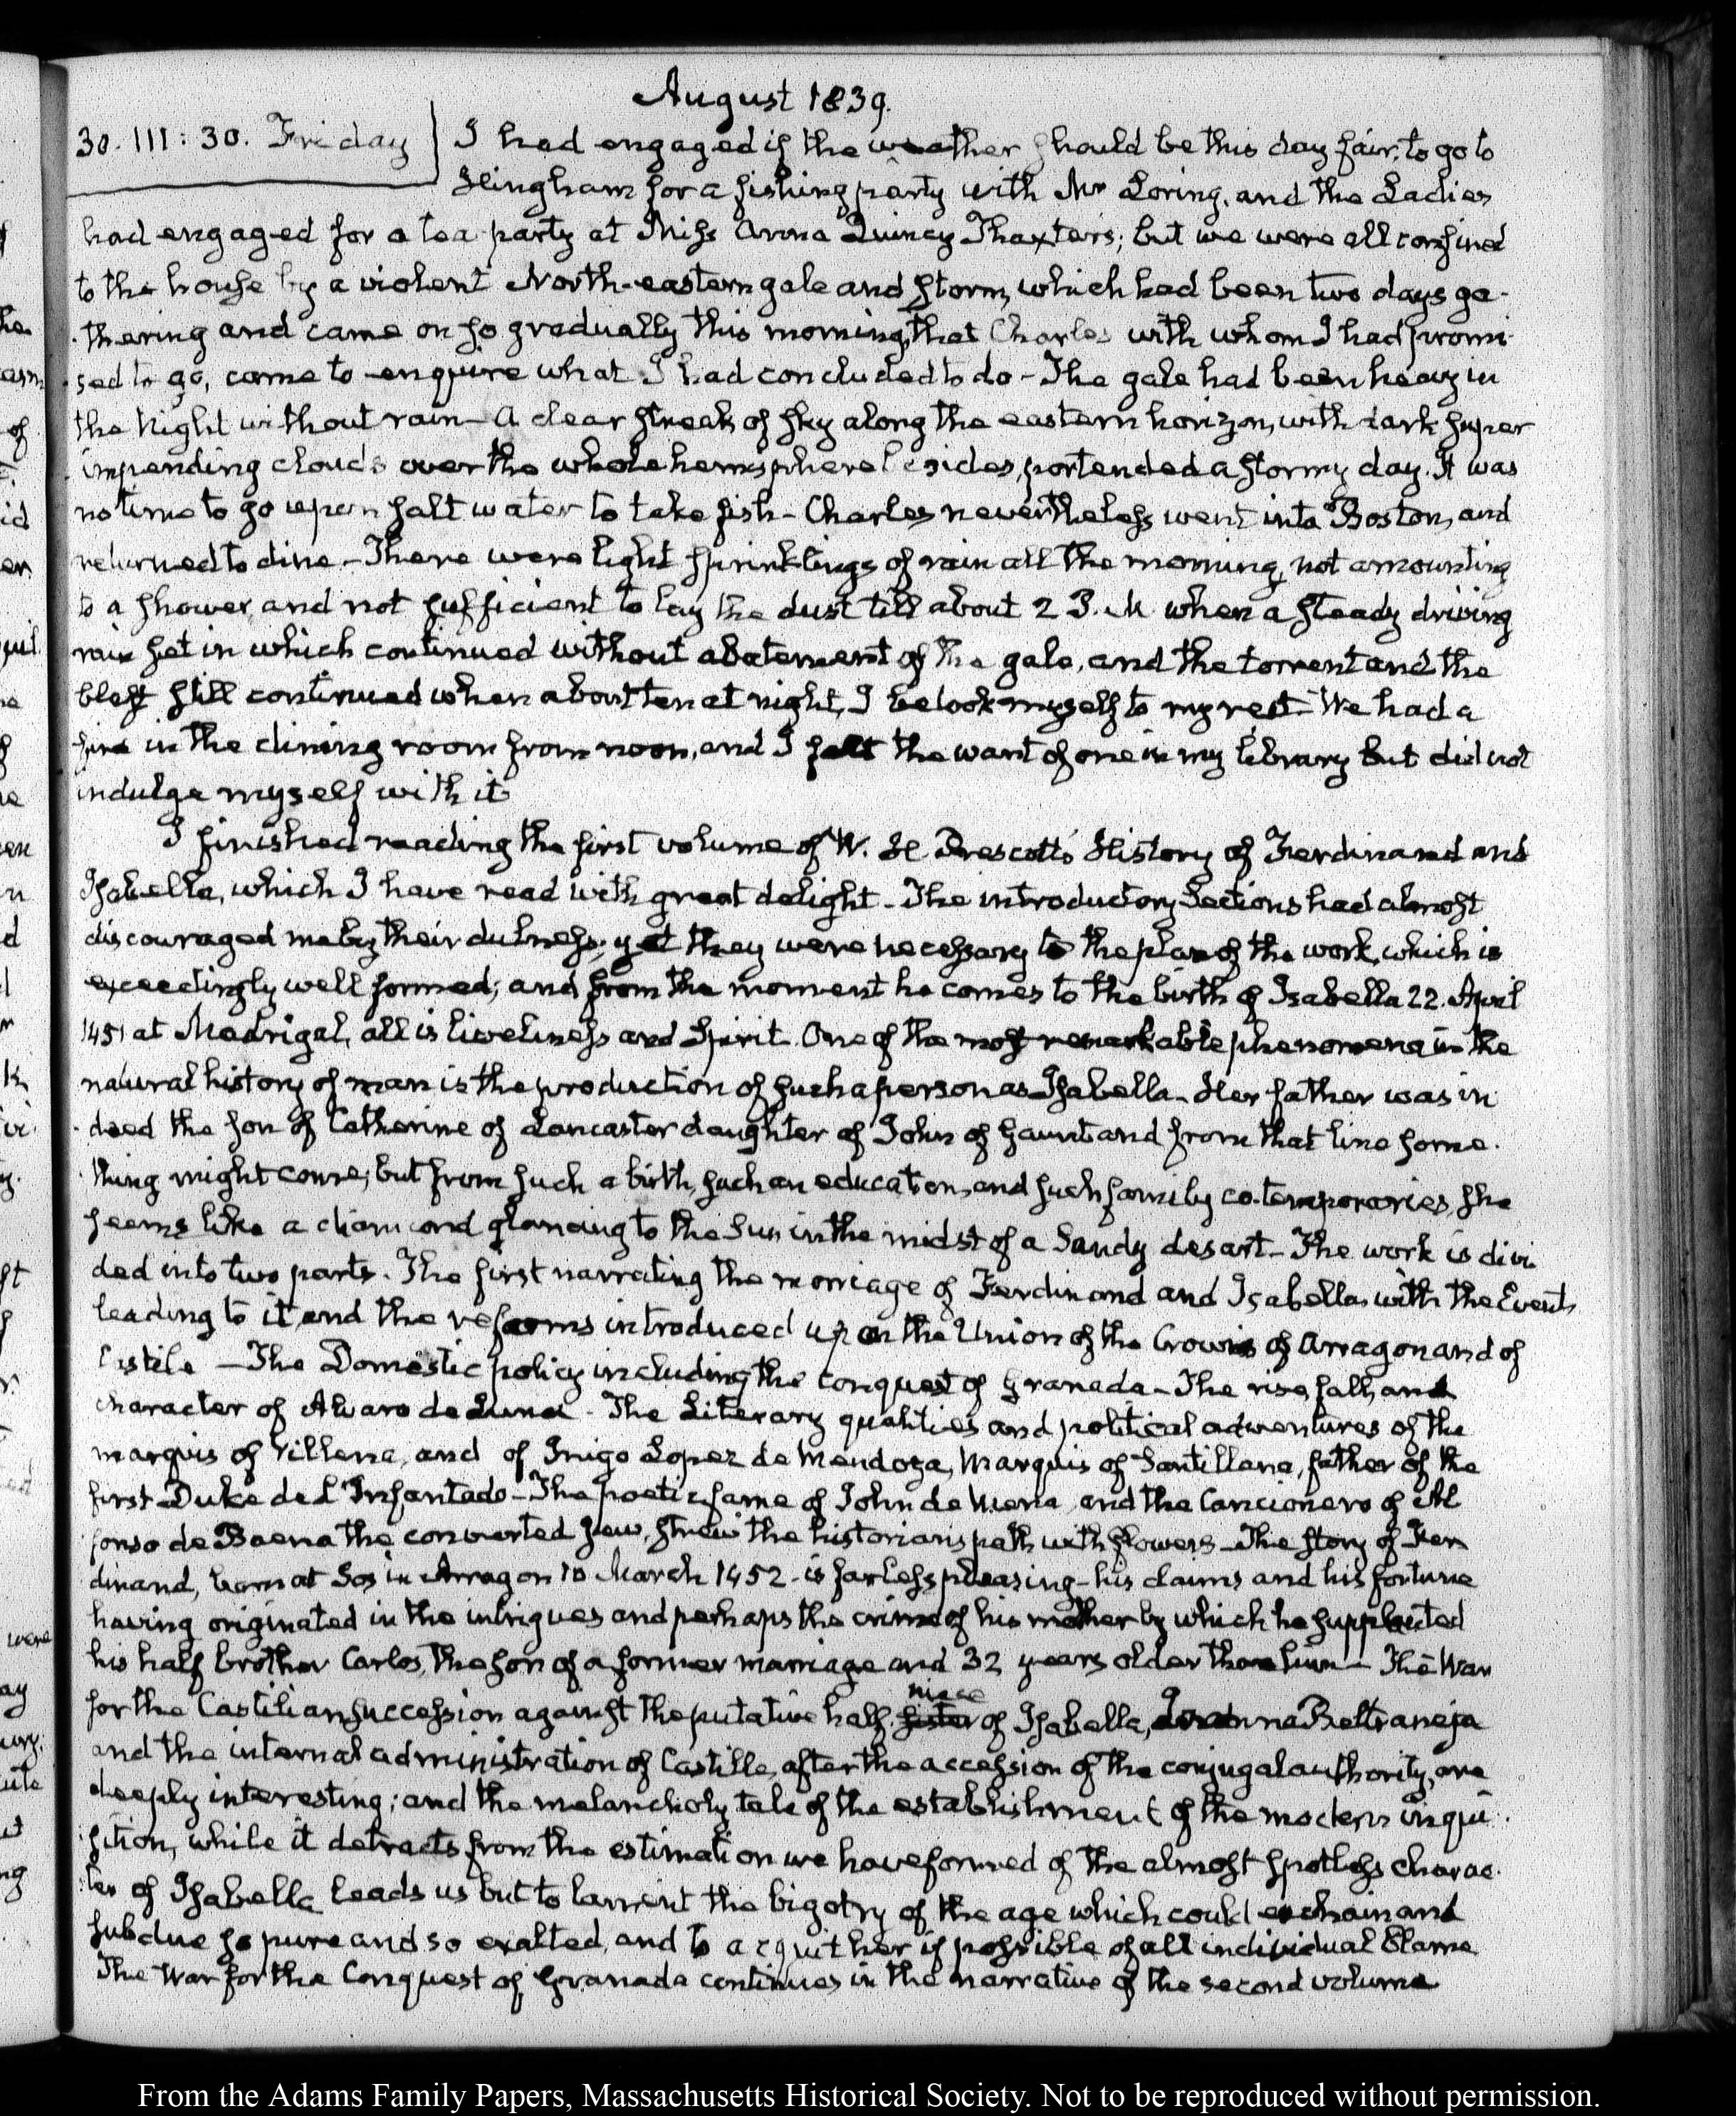 August 1839.
30. III: 30. Friday
I had engaged if the weather should be this day fair, to go to
Hingham for a fishing party with Mr Loring, and the Ladies
had engaged for a tea party at Miss Anna Quincy Thaxter's; but we were all confined
to the house by a violent North-eastern gale and storm, which had been two days ga-
thering and came on so gradually this morning, that Charles with whom I had promi-
sed to go, came to enquire what I had concluded to do - The gale had been heavy in
the Night without rain - A clear streak of sky along the eastern horizon, with dark super
impending clouds over the whole hemisphere besides, portended a stormy day. It was
no time to go upon salt water to take fish - Charles nevertheless went into Boston, and
returned to dine - There were light sprinklings of rain all the morning, not amounting
to a shower, and not sufficient to lay the dust till about 2 P. M. when a steady driving
rain set in which continued without abatement of the gale, and the torrent and the
blast still continued when about ten at night, I betook myself to my rest - We had a
fire in the dining room from noon, and I felt the want of one in my library but did not
indulge myself with it
I finished reading the first volume of W. H Prescott's History of Ferdinand and
Isabella, which I have read with great delight - The introductory Sections had almost
discouraged me by their dulness, yet they were necessary to the plan of the work, which is
exceedingly well formed; and from the moment he comes to the birth of Isabella 22. April
1451 at Madrigal, all is liveliness and Spirit. One of the most remarkable phenomena in the
natural history of man is the production of such a person as Isabella - Her father was in
deed the son of Catherine of Lancaster daughter of John of Gaunt and from that line some-
thing might come; but from such a birth, such an education, and such family co-temporaries, she
seems like a diamond glancing to the Sun in the midst of a Sandy desart - The work is divi
ded into two parts. The first narrating the marriage of Ferdinand and Isabella, with the Events
leading to it, and the reforms introduced upon the Union of the Crowns of Arragon and of
Castile - The Domestic policy including the conquest of Granada - The rise, fall, and
character of Alvaro de Luna - The Literary qualities and political adventures of the
marquis of Villena, and of Inigo Lopez de Mendoza, Marquis of Santillana, father of the
first Duke del Infantado - The poetic fame of John de Mena, and the Cancionero of Al
fonso de Baena the converted Jew, strew the historian's path with flowers - The story of Fer
dinand, born at Sos in Arragon 10 March 1452 - is far less pleasing - his claims and his fortune
having originated in the intrigues and perhaps the crime of his mother by which he supplanted
his half brother Carlos, the son of a former marriage and 32 years older than him - The War
niece
for the Castilian succession against the putative half-sister of Isabella, Joanna Beltraneja
and the internal administration of Castille, after the accession of the conjugal authority, are
deeply interesting; and the melancholy tale of the establishment of the modern inqui-
sition, while it detracts from the estimation we have formed of the almost spotless charac-
ter of Isabella leads us but to lament the bigotry of the age which could enchain and
subdue so pure and so exalted, and to acquit her if possible of all individual Blame
The War for the Conquest of Granada continues in the narrative of the second volume
From the Adams Family Papers, Massachusetts Historical Society. Not to be reproduced without permission.